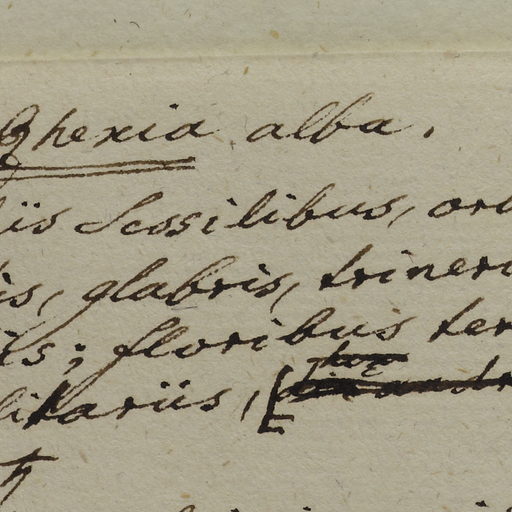 Rhexia alba.
iis Sessilibus, ov
is, glabris, triner
is; floribus ter
litariis, [